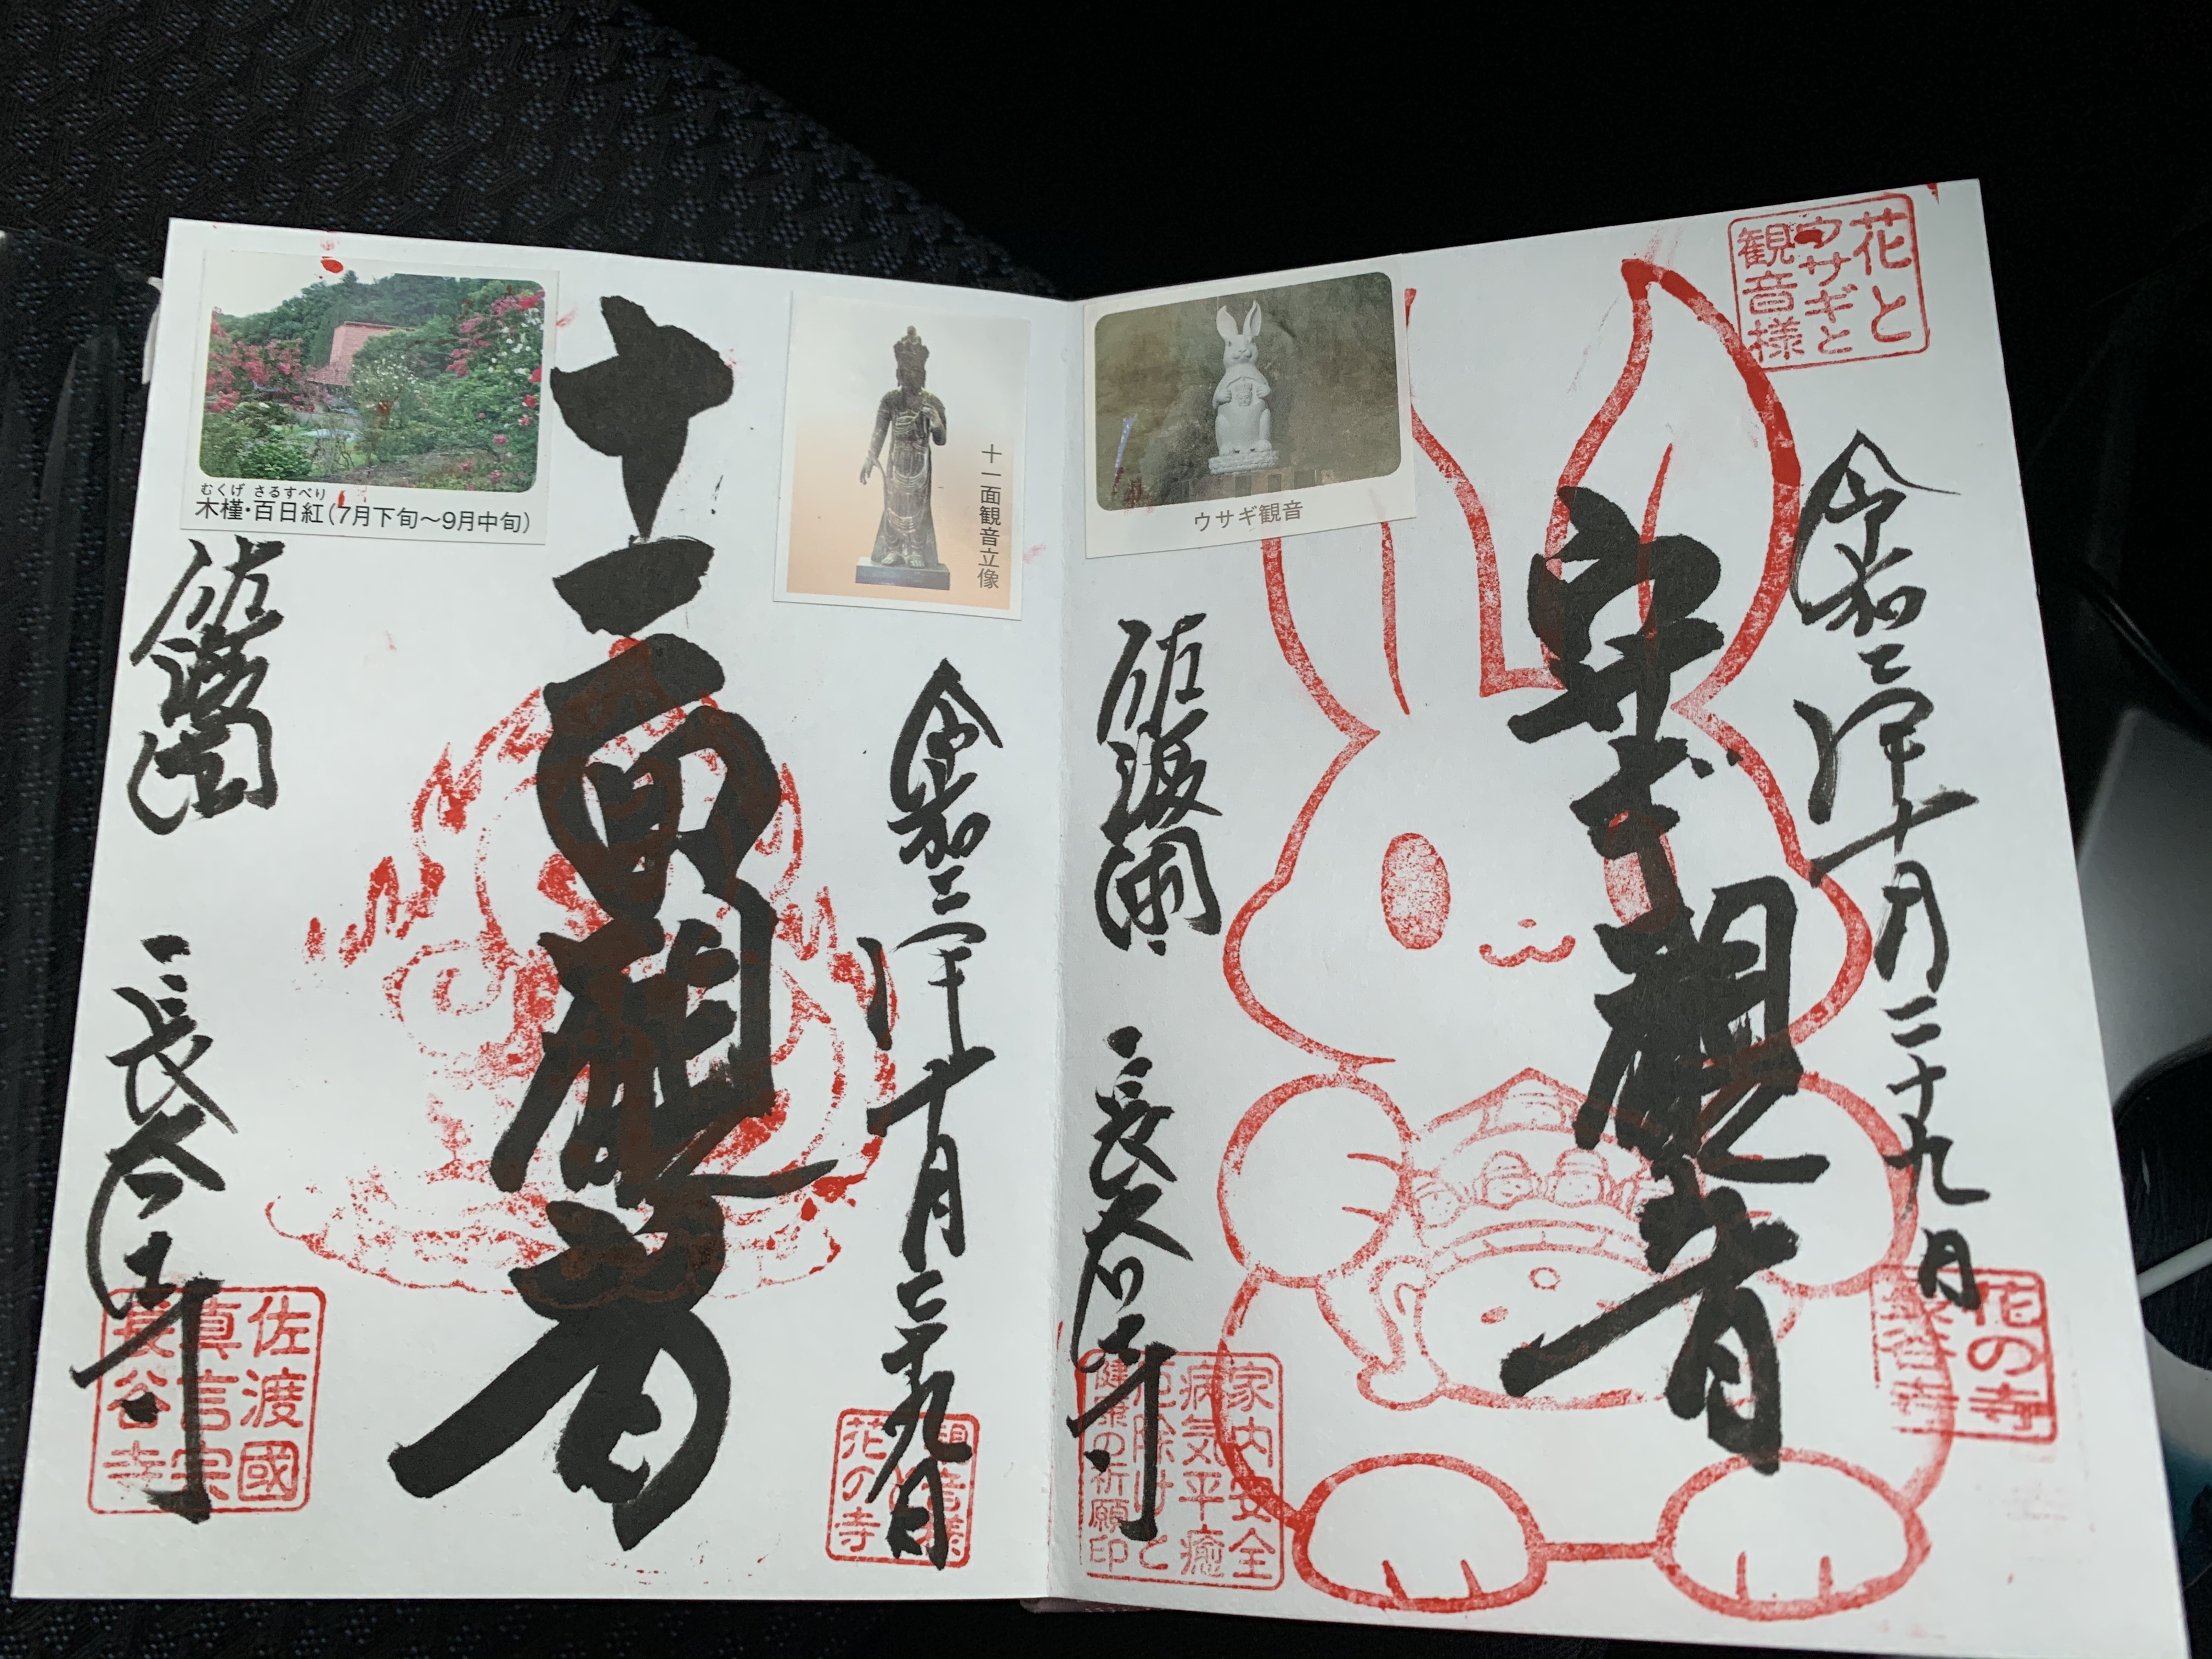 花と
ウサギと
観音様
令和三年十月二十九日
花の寺
長谷寺
観音
ウサギ観音
佐渡國
長谷寺
家内安全
病気平癒
厄除けと
健康の祈願印
十一面観音立像
令和三年十月二十九日
花の寺
十一面観音
むくげ さるすべり
木槿・百日紅(7月下旬〜9月中旬)
佐渡國
長谷寺
佐渡國
真言宗
長谷寺